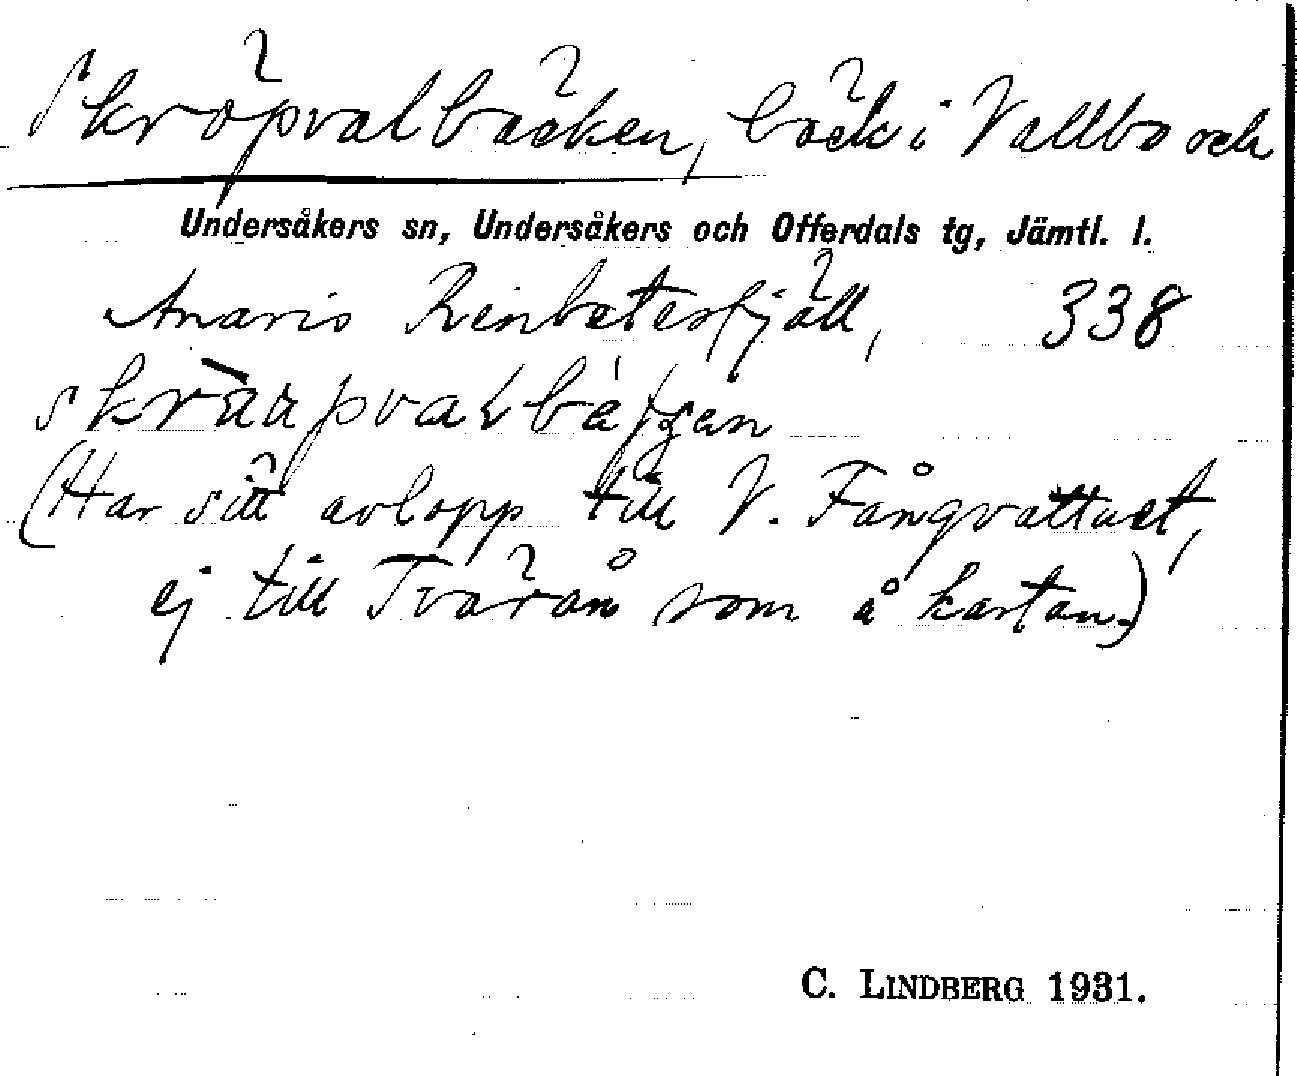 Skröpvalbäcken, bäck i Vallbo och
Undersåkers sn, Undersåkers och Offerdals tg, Jämtl. l.
Anaris Renbetesfjäll, 338
(Har sitt avlopp till V. Fångvattnet,
ej till Tvärån som å kartan.)
C. LINDBERG 1931.